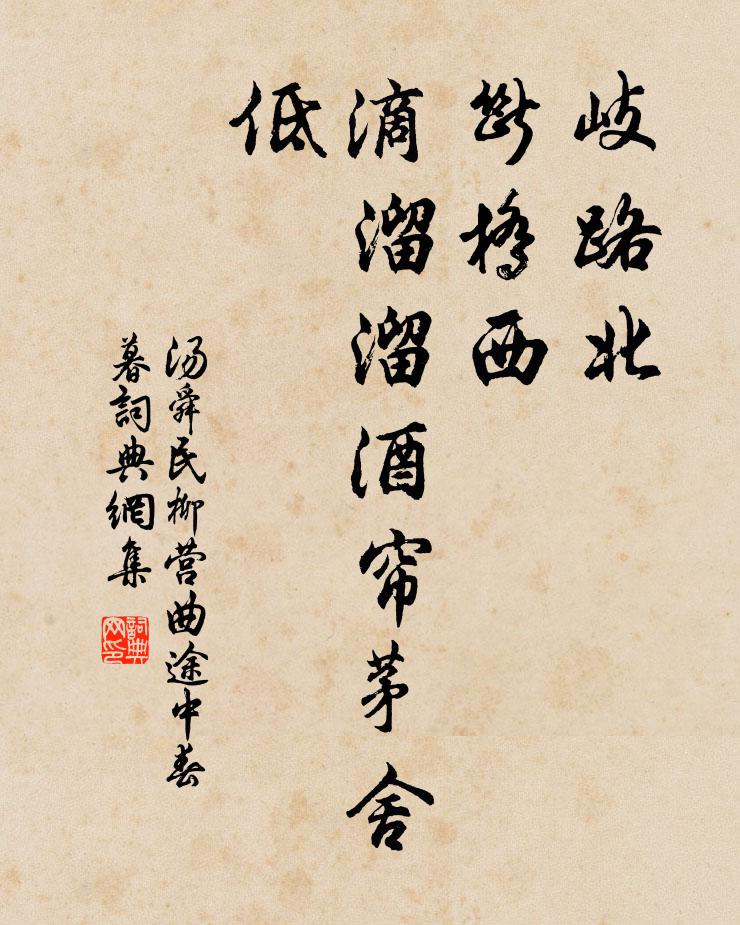 歧路北
断桥西
滴溜溜酒帘茅舍
低
汤舜民柳营曲途中春
暮詞典網集
詞典
网印